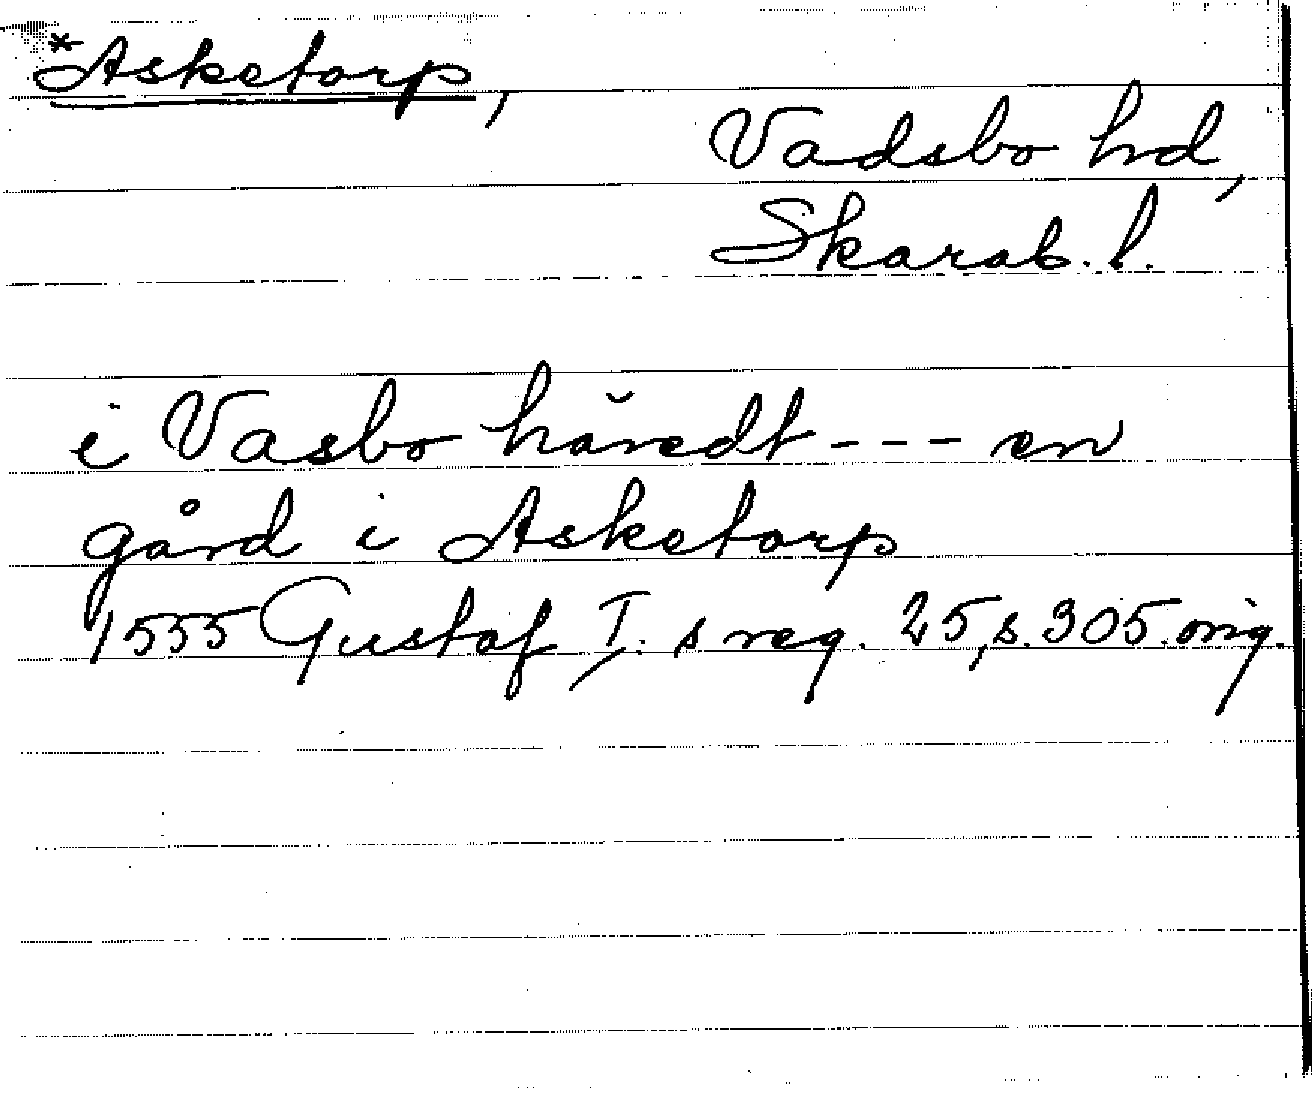 *Asketorp,
Vadsbo hd,
Skarab. l.
i Vasbo häredt --- en
gård i Asketorp
1555 Gustaf I: s reg. 25, s. 305. orig.